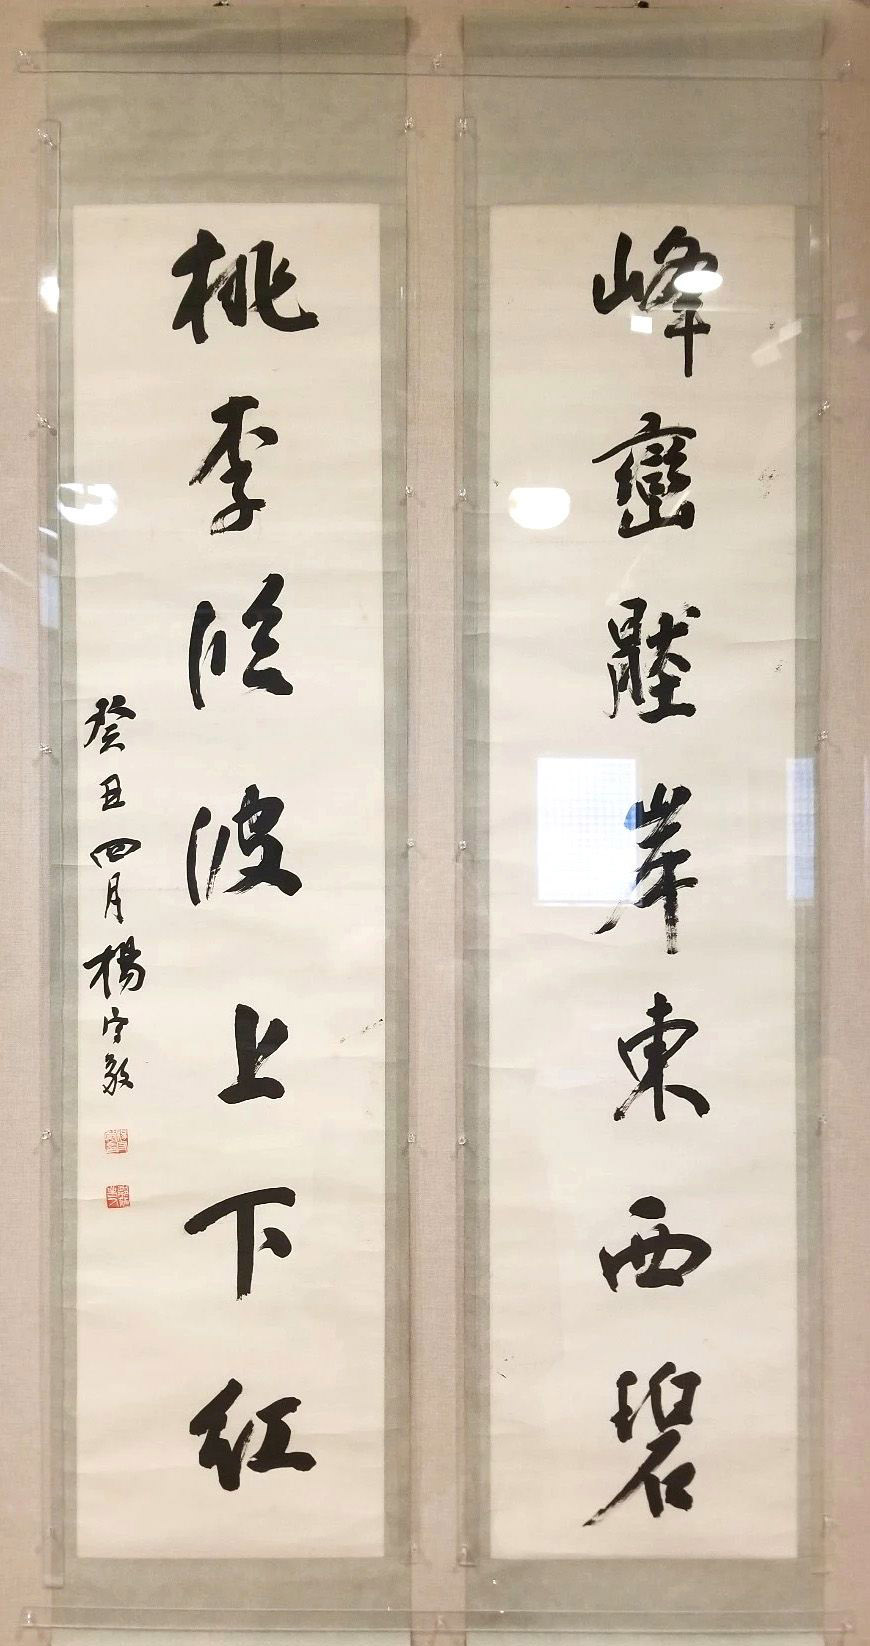 峰巒壓岸東西碧
桃李臨波上下紅
癸丑四月楊守敬